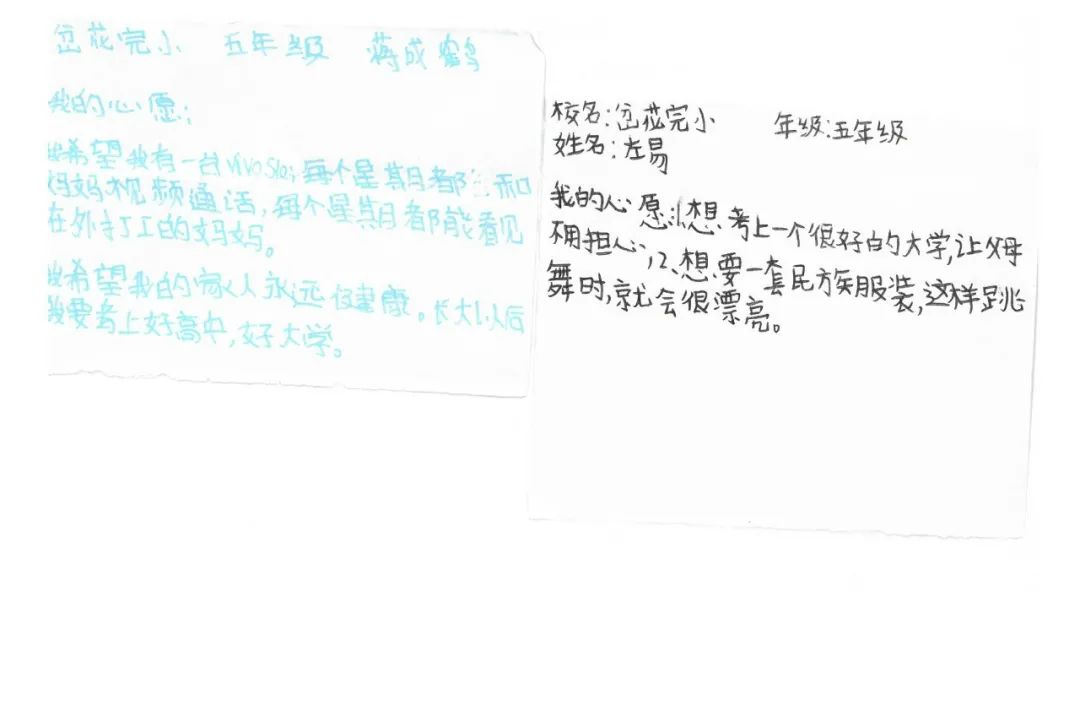 岔花完小 五年级 蒋成鹤
我的心愿:
我希望我有一台vivoS10,每个星期都能和
妈妈视频通话,每个星期都能看见
在外打工的妈妈。
我希望我的家人永远健康。长大以后
我要考上好高中,好大学。
校名:岔花完小 年级:五年级
姓名:左易
我的心愿:1、想考上一个很好的大学,让父母
不用担心,2、想要一套民族服装,这样跳
舞时,就会很漂亮。